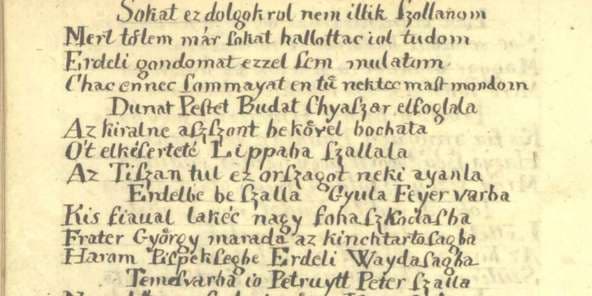 Sokat ez dolgokrol nem illik szollanom
Mert tőlem már sokat hallottac iol tudom
Erdeli gondomat ezzel sem mulatom
Chac ennec sommayat en tű nektec mast mondom
Dunat Pestet Budat Chyaszar elfoglala
Az kiralne aszszont bekővel bochata
Őt elkeserteté Lippaba szallala
Az Tiszan tul ez orszagot neki ayanla
Erdelbe be szalla Gyula Feyer varba
Kis fiaual lakéc nagy fohaszkodasba
Frater Gyŏrgy marada az kinchtartosagba
Haram Pispeksegbe Erdeli Waydasagba
Temesvarba io Petruytt Peter szalla